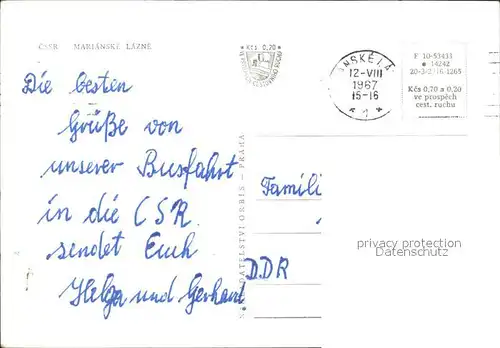 ČSSR MARIÁNSKÉ LÁZNĚ
Kčs 0,20
NSKÉ LÁ
12-VIII
1967
15-16
* 1 *
F 10-53433
14242
Kčs 0,70 a 0,20
ve prospěch
cest. ruchu
Die besten
Grüße von
unserer Busfahrt
in die CSR
sendet Euch
Helga und Gerhard
DATELSTVÍ ORBIS – PRAHA
Famili
DDR
privacy protection
Datenschutz